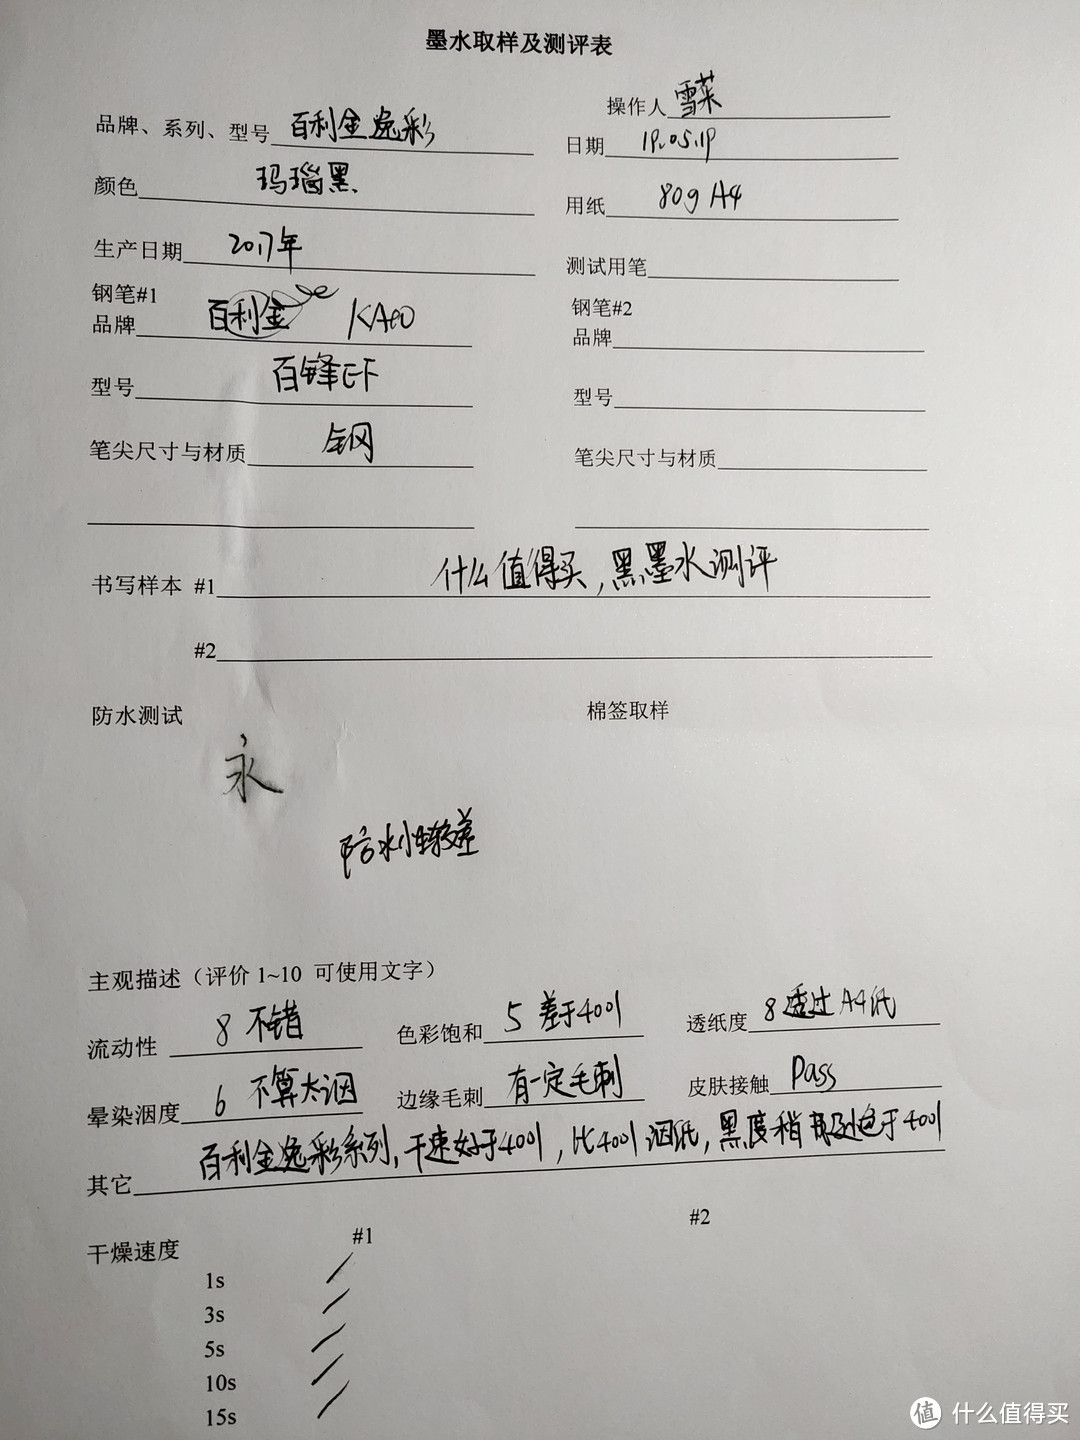 墨水取样及测评表
操作人 雪菜
品牌、系列、型号 百利金逸彩
日期 19.05.19
颜色 玛瑙黑
用纸 80g A4
生产日期 2017年
测试用笔
钢笔#1
钢笔#2
品牌 百利金 KACO
品牌
型号 百锋EF
型号
笔尖尺寸与材质 钢
笔尖尺寸与材质
书写样本 #1 什么值得买,黑墨水测评
#2
防水测试
棉签取样
永
防水性较差
主观描述（评价 1~10 可使用文字）
流动性 8 不错 色彩饱和 5 差于4001 透纸度 8 透过A4纸
晕染洇度 6 不算太洇 边缘毛刺 有一定毛刺 皮肤接触 Pass
其它 百利金逸彩系列,干速好于4001,比4001洇纸,黑度稍于4001
干燥速度 #1 #2
1s
3s
5s
10s
15s
值 什么值得买